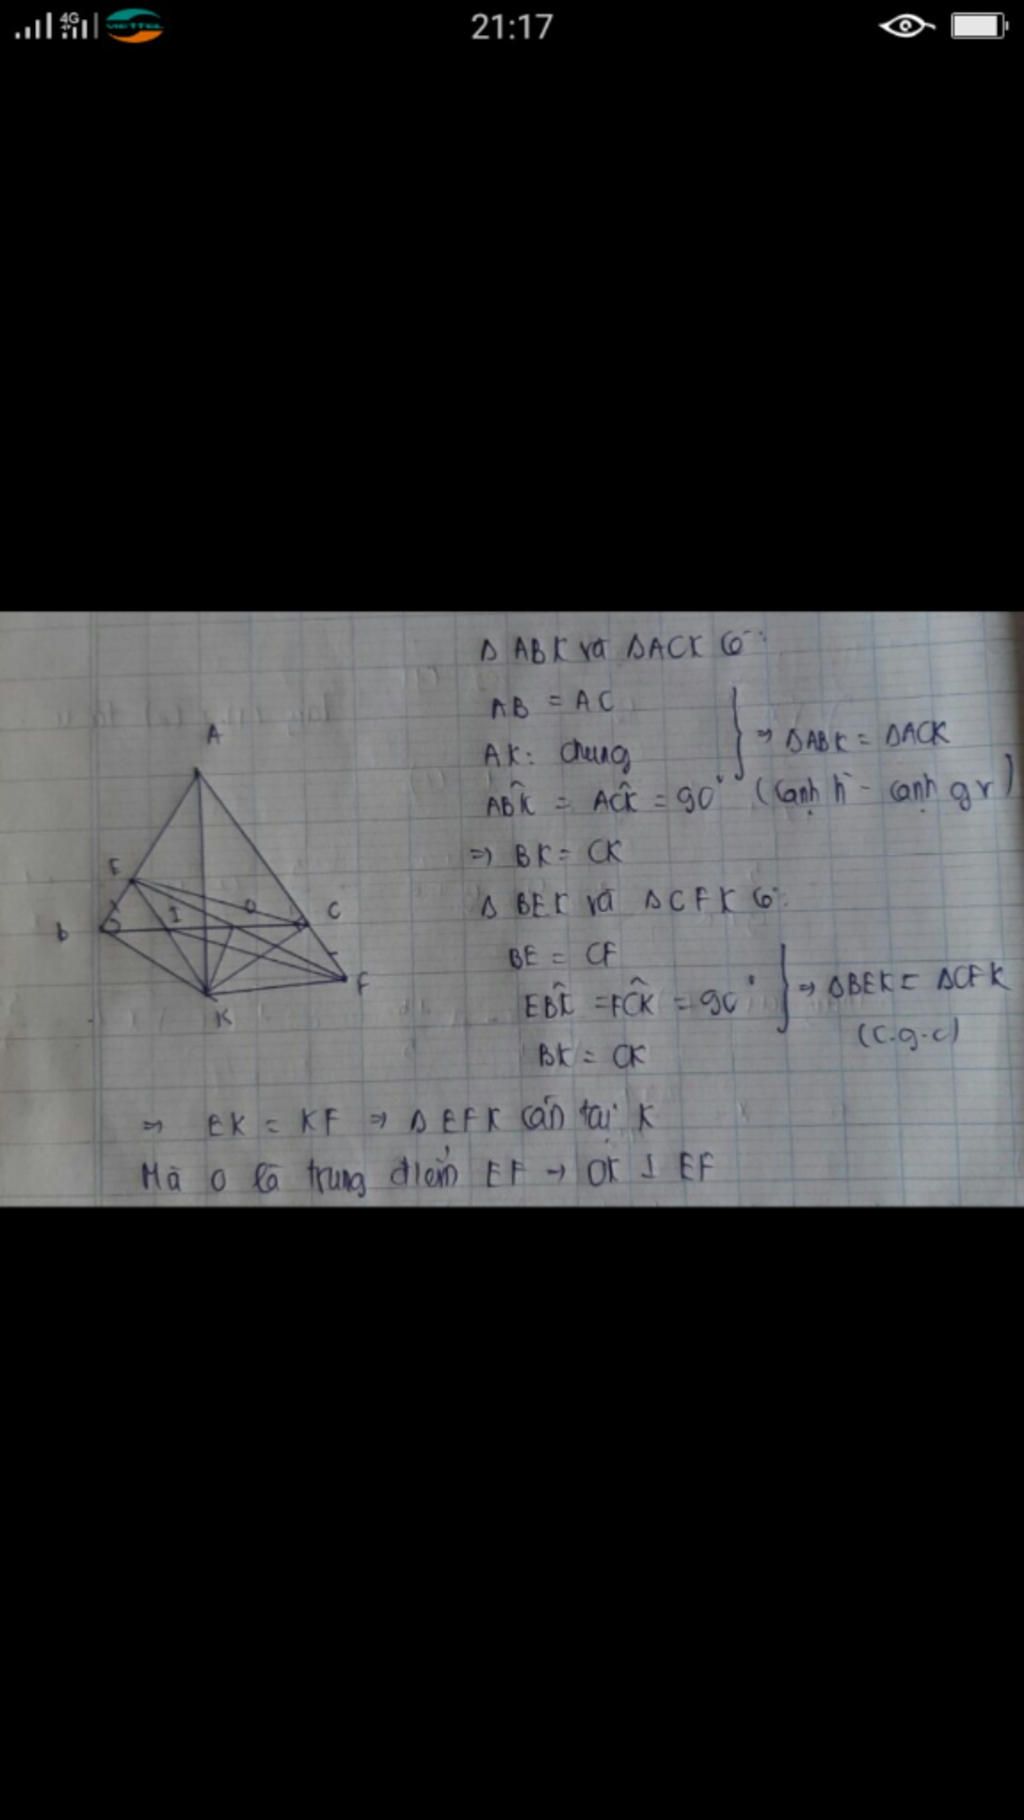 4G VIETTEL 21:17
Δ ABK và ΔACK có:
AB = AC
AK: chung
ABK̂ = ACK̂ = 90°
⇒ ΔABK = ΔACK
(cạnh h - cạnh gv)
⇒ BK = CK
Δ BEK và ΔCFK có:
BE = CF
EBK̂ = FCK̂ = 90°
BK = CK
⇒ ΔBEK = ΔCFK
(c.g.c)
⇒ EK = KF ⇒ Δ EFK cân tại K
Mà O là trung điểm EF → OK ⊥ EF
A
E
B
I
O
C
F
K